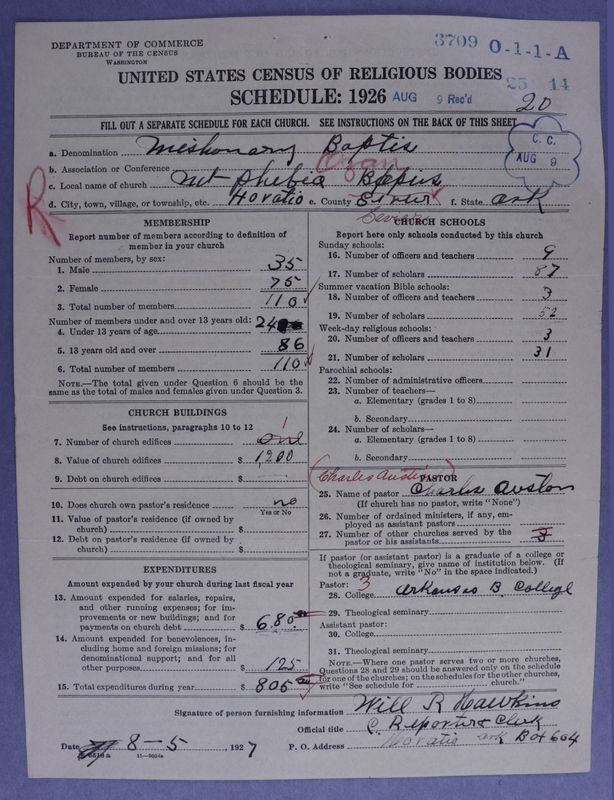 DEPARTMENT OF COMMERCE
BUREAU OF THE CENSUS
WASHINGTON
3709 O-1-1-A
UNITED STATES CENSUS OF RELIGIOUS BODIES
25 14
SCHEDULE: 1926 AUG 9 Rec'd
20
FILL OUT A SEPARATE SCHEDULE FOR EACH CHURCH. SEE INSTRUCTIONS ON THE BACK OF THIS SHEET
C. C.
AUG 9
a. Denomination Mishonary Baptis
b. Association or Conference
c. Local name of church Mt Phebia Bapius
d. City, town, village, or township, etc. Horatio e. County f. State Ark
R
Sevier
MEMBERSHIP
Report number of members according to definition of
member in your church
Number of members, by sex:
1. Male 35
2. Female 75
3. Total number of members 110
Number of members under and over 13 years old:
4. Under 13 years of age 24
5. 13 years old and over 86
6. Total number of members 110
NOTE.—The total given under Question 6 should be
same as the total of males and females given under Question 3.
CHURCH BUILDINGS
See instructions, paragraphs 10 to 12
1
7. Number of church edifices one
8. Value of church edifices $ 1,200
9. Debt on church edifices $
10. Does church own pastor's residence no
Yes or No
11. Value of pastor's residence (if owned by
church) $
12. Debt on pastor's residence (if owned by
church) $
EXPENDITURES
Amount expended by your church during last fiscal year
13. Amount expended for salaries, repairs,
and other running expenses; for im-
provements or new buildings; and for
payments on church debt $ 680.
14. Amount expended for benevolences, in-
cluding home and foreign missions; for
denominational support; and for all
other purposes $ 125
15. Total expenditures during year $ 805
CHURCH SCHOOLS
Report here only schools conducted by this church
Sunday schools:
16. Number of officers and teachers 9
17. Number of scholars 87
Summer vacation Bible schools:
18. Number of officers and teachers 3
19. Number of scholars 52
Week-day religious schools:
20. Number of officers and teachers 3
21. Number of scholars 31
Parochial schools:
22. Number of administrative officers
23. Number of teachers—
a. Elementary (grades 1 to 8)
b. Secondary
24. Number of scholars—
a. Elementary (grades 1 to 8)
b. Secondary
(Charles Austin)
PASTOR
25. Name of pastor Charlie Auston
(If church has no pastor, write "None")
26. Number of ordained ministers, if any, em-
ployed as assistant pastors
27. Number of other churches served by the
pastor or his assistants 3
If pastor (or assistant pastor) is a graduate of a college or
theological seminary, give name of institution below. (If
not a graduate, write "No" in the space indicated.)
Pastor: 3
28. College Arkansas B. College
29. Theological seminary
Assistant pastor:
30. College
31. Theological seminary
NOTE.—Where one pastor serves two or more churches,
Questions 28 and 29 should be answered only on the schedule
for one of the churches; on the schedules for the other churches,
write "See schedule for church."
Signature of person furnishing information Will R Hawkins
Official title C. Reporter & Clerk
Date 8-5, 1927 P. O. Address Horatio Ark Box 604